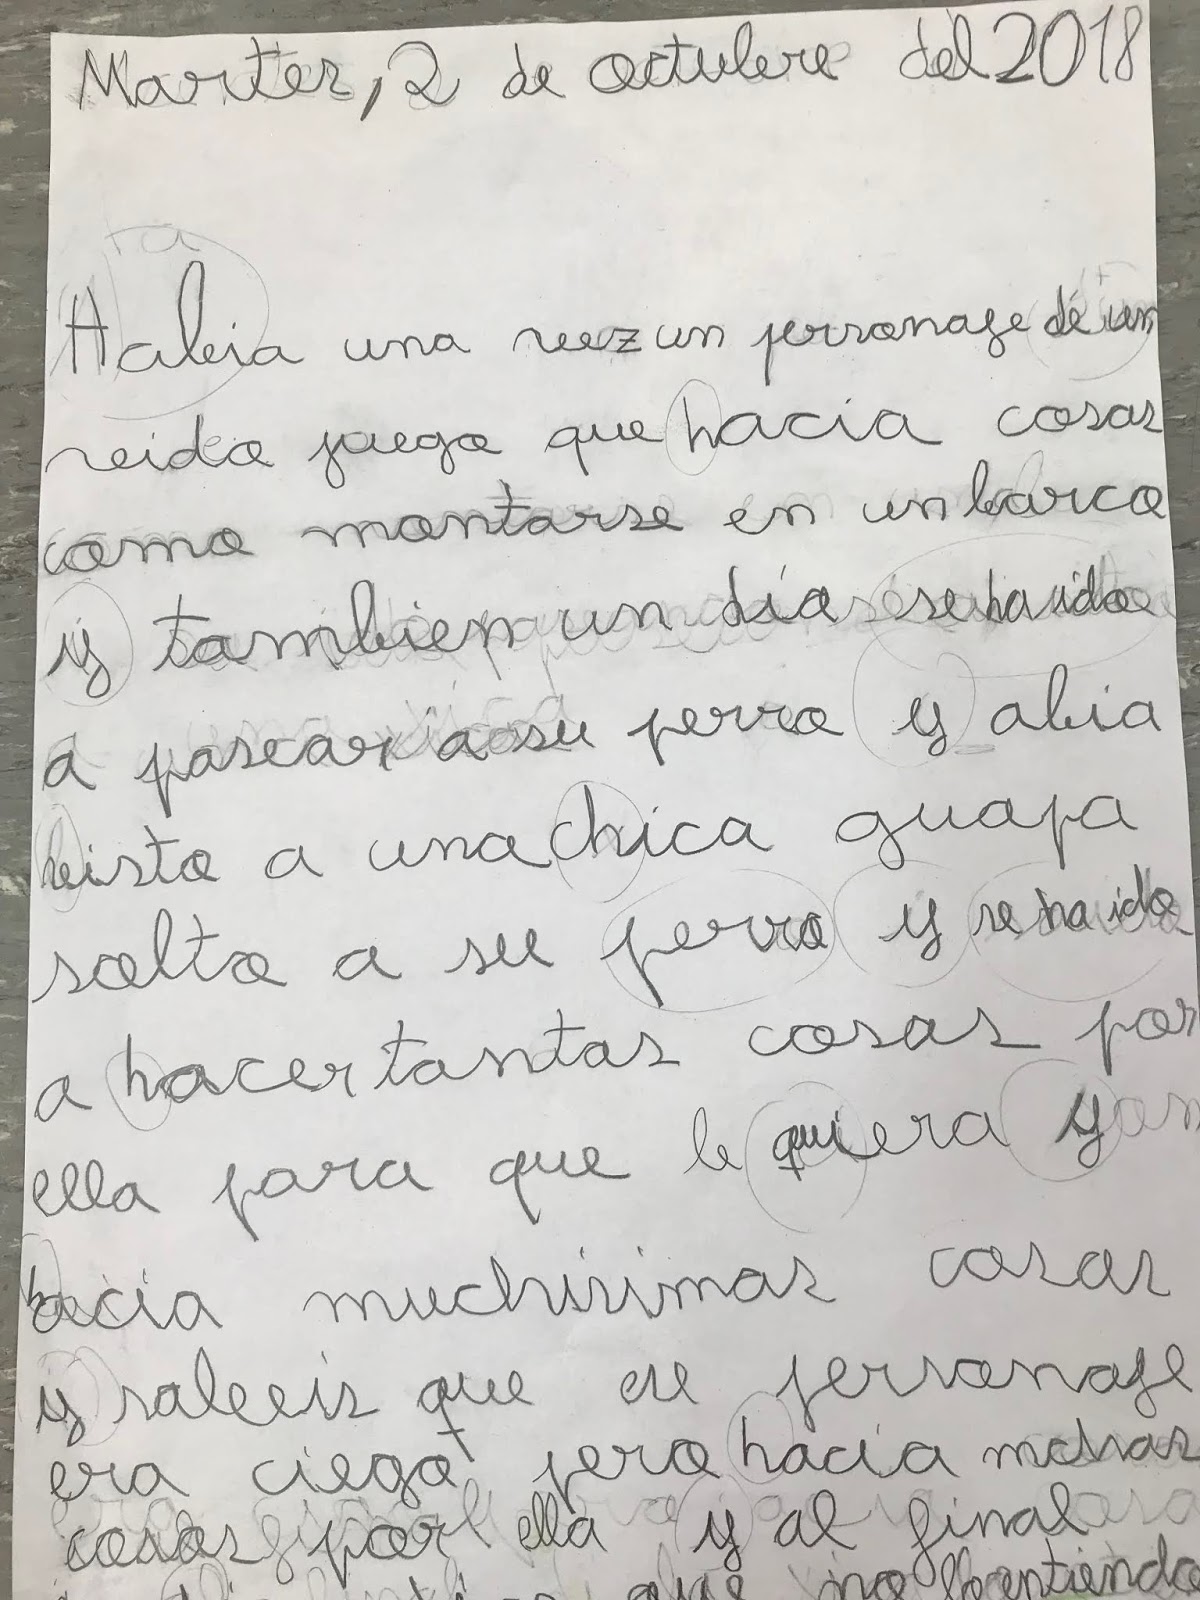 Martes, 2 de octubre del 2018
Habia una vez un personage de un
veido juego que hacia cosas
como montarse en un barco
y tambien un día se ha ido
a pasear a su perro y abia
visto a una chica guapa
solto a su perro y se ha ido
a hacer tantas cosas por
ella para que le quiera y
hacia muchisimas cosas
y sabeis que ese personage
era ciego pero hacia muchas
cosas por ella y al final
que no le entiendo